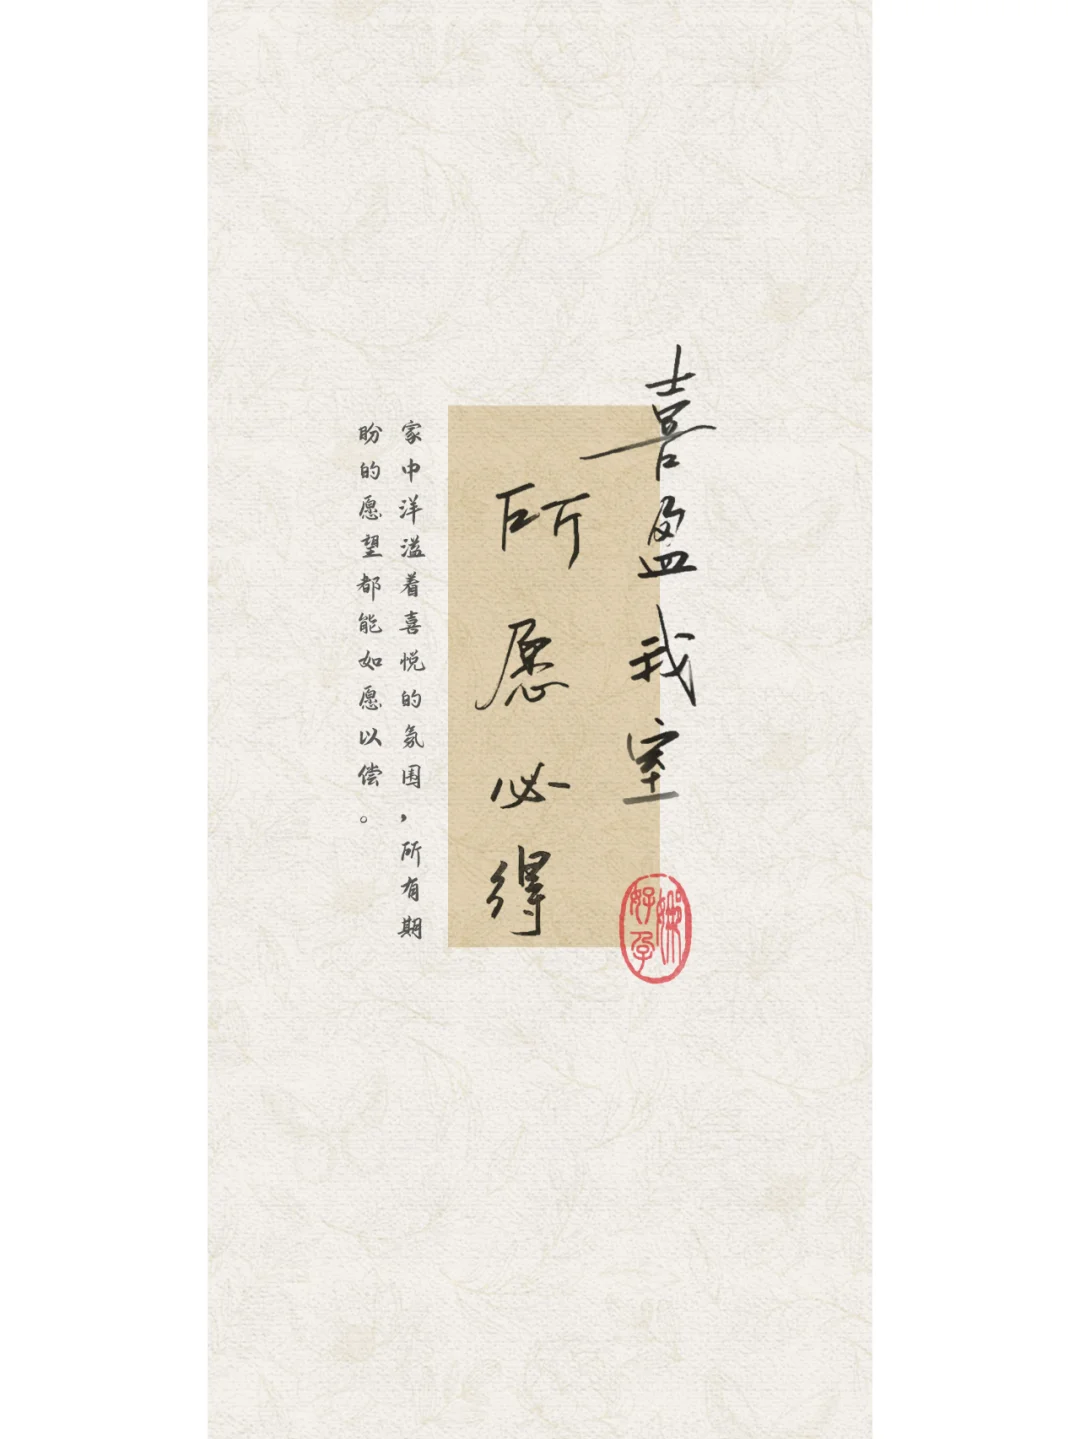 喜盈我室
所愿必得
家中洋溢着喜悦的氛围，所有期
盼的愿望都能如愿以偿。
好孕